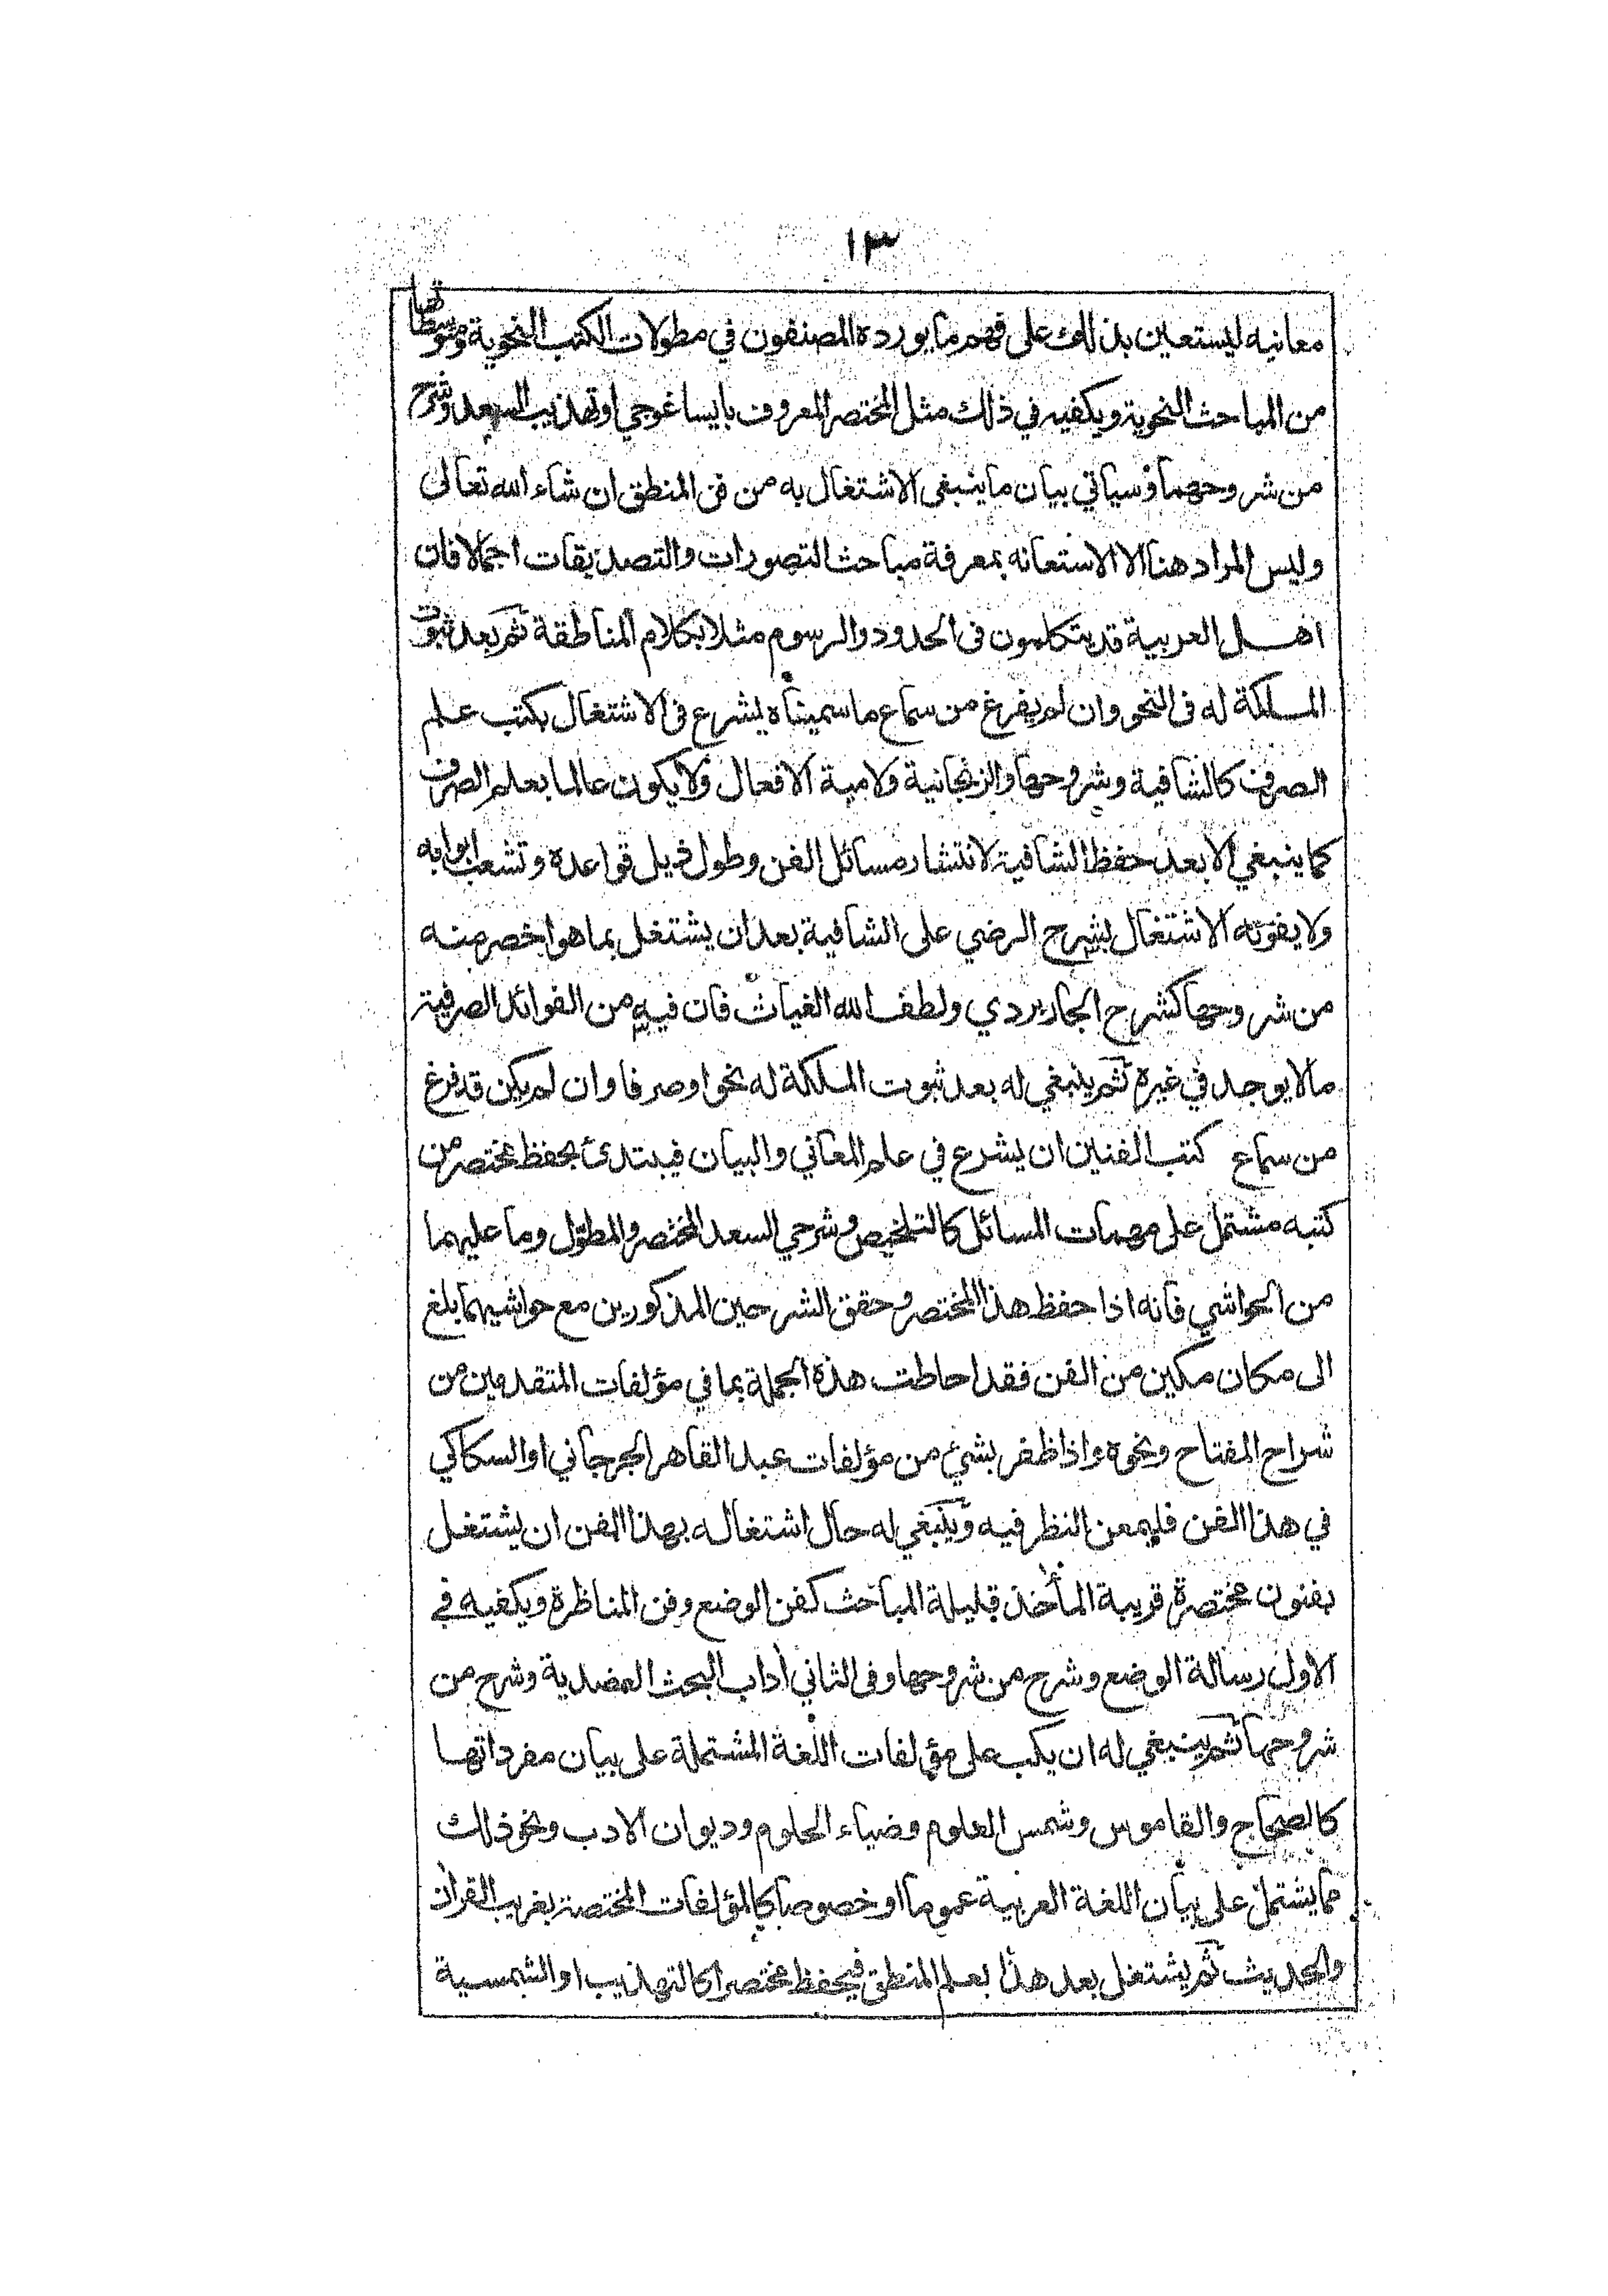 ١٣
معانيه ليستعين بذلك على فهم ما يورده المصنفون في مطولات الكتب النحوية ومتوسطاتها
من المباحث النحوية ويكفيه في ذلك مثل المختصر المعروف بايساغوجي او تهذيب السعد وشرح
من شروحهما وسياتي بيان ما ينبغي الاشتغال به من فن المنطق ان شاء الله تعالى
وليس المراد هنا الا الاستعانه بمعرفة مباحث التصورات والتصديقات اجمالا فان
اهل العربية قد يتكلمون في الحدود والرسوم مثلا بكلام المناطقة ثم بعد ثبوت
الملكة له فى النحو وان لم يفرغ من سماع ما سميناه يشرع فى الاشتغال بكتب علم
الصرف كالشافية وشروحها والزنجانية ولامية الافعال ولا يكون عالما بعلم الصرف
كما ينبغي الا بعد حفظ الشافية لانتشار مسائل الفن وطول ذيل قواعده وتشعب ابوابه
ولا يفوته الاشتغال بشرح الرضي على الشافية بعد ان يشتغل بما هو اخصر منه
من شروحها كشرح الجاربردي ولطف الله الغياث فان فيه من الفوائد الصرفية
ما لا يوجد في غيره ثم ينبغي له بعد ثبوت الملكة له نحوا وصرفا وان لم يكن قد فرغ
من سماع كتب الفنين ان يشرع في علم المعاني والبيان فيبتدئ بحفظ مختصر من
كتبه مشتمل على مهمات المسائل كالتلخيص وشرحي السعد المختصر والمطوّل وما عليهما
من الحواشي فانه اذا حفظ هذا المختصر وحقق الشرحين المذكورين مع حواشيهما بلغ
الى مكان مكين من الفن فقد احاطت هذه الجملة بما في مؤلفات المتقدمين من
شراح المفتاح ونحوه واذا ظفر بشئ من مؤلفات عبد القاهر الجرجاني او السكاكي
في هذا الفن فليمعن النظر فيه وينبغي له حال اشتغاله بهذا الفن ان يشتغل
بفنون مختصرة قريبة المأخذ قليلة المباحث كفن الوضع وفن المناظرة ويكفيه في
الاول رسالة الوضع وشرح من شروحها وفى الثاني آداب البحث العضدية وشرح من
شروحها ثم ينبغي له ان يكب على مؤلفات اللغة المشتملة على بيان مفرداتها
كالصحاح والقاموس وشمس العلوم وضياء الحلوم وديوان الادب ونحو ذلك
مما يشتمل على بيان اللغة العربية عموما او خصوصا كالمؤلفات المختصة بغريب القرآن
والحديث ثم يشتغل بعد هذا بعلم المنطق فيحفظ مختصرا كالتهذيب او الشمسية